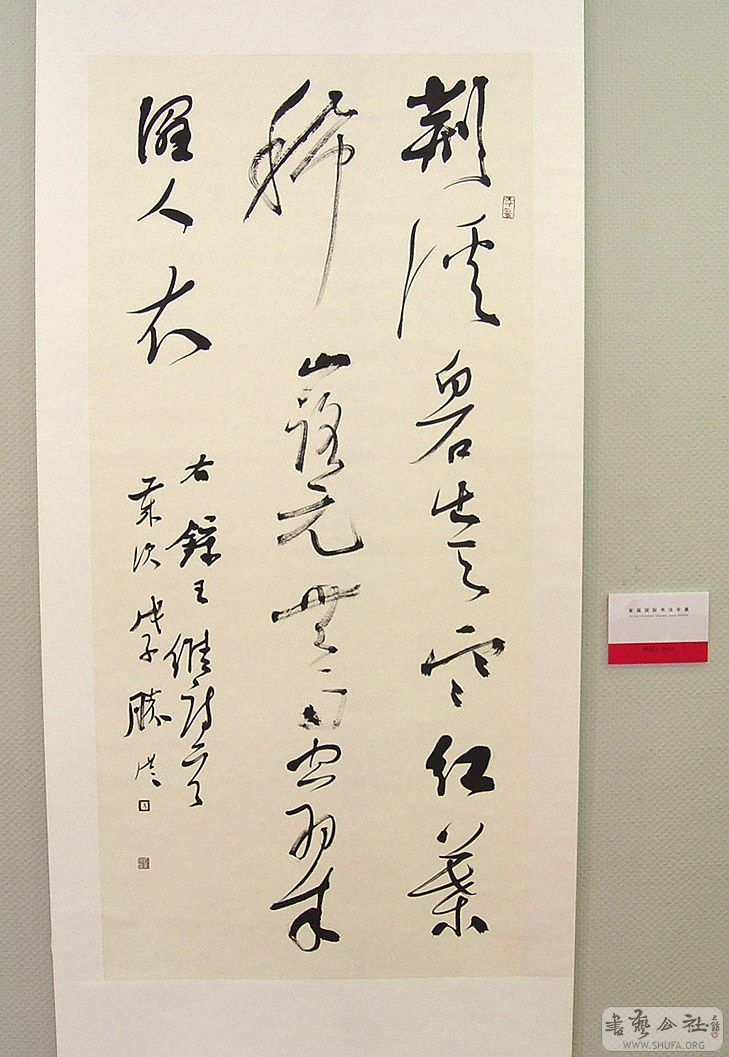 荆溪白石出天寒红葉
稀山路元無雨空翠
湿人衣
右録王維詩一首
歲次戊子
書藝公社
WWW.SHUFA.ORG